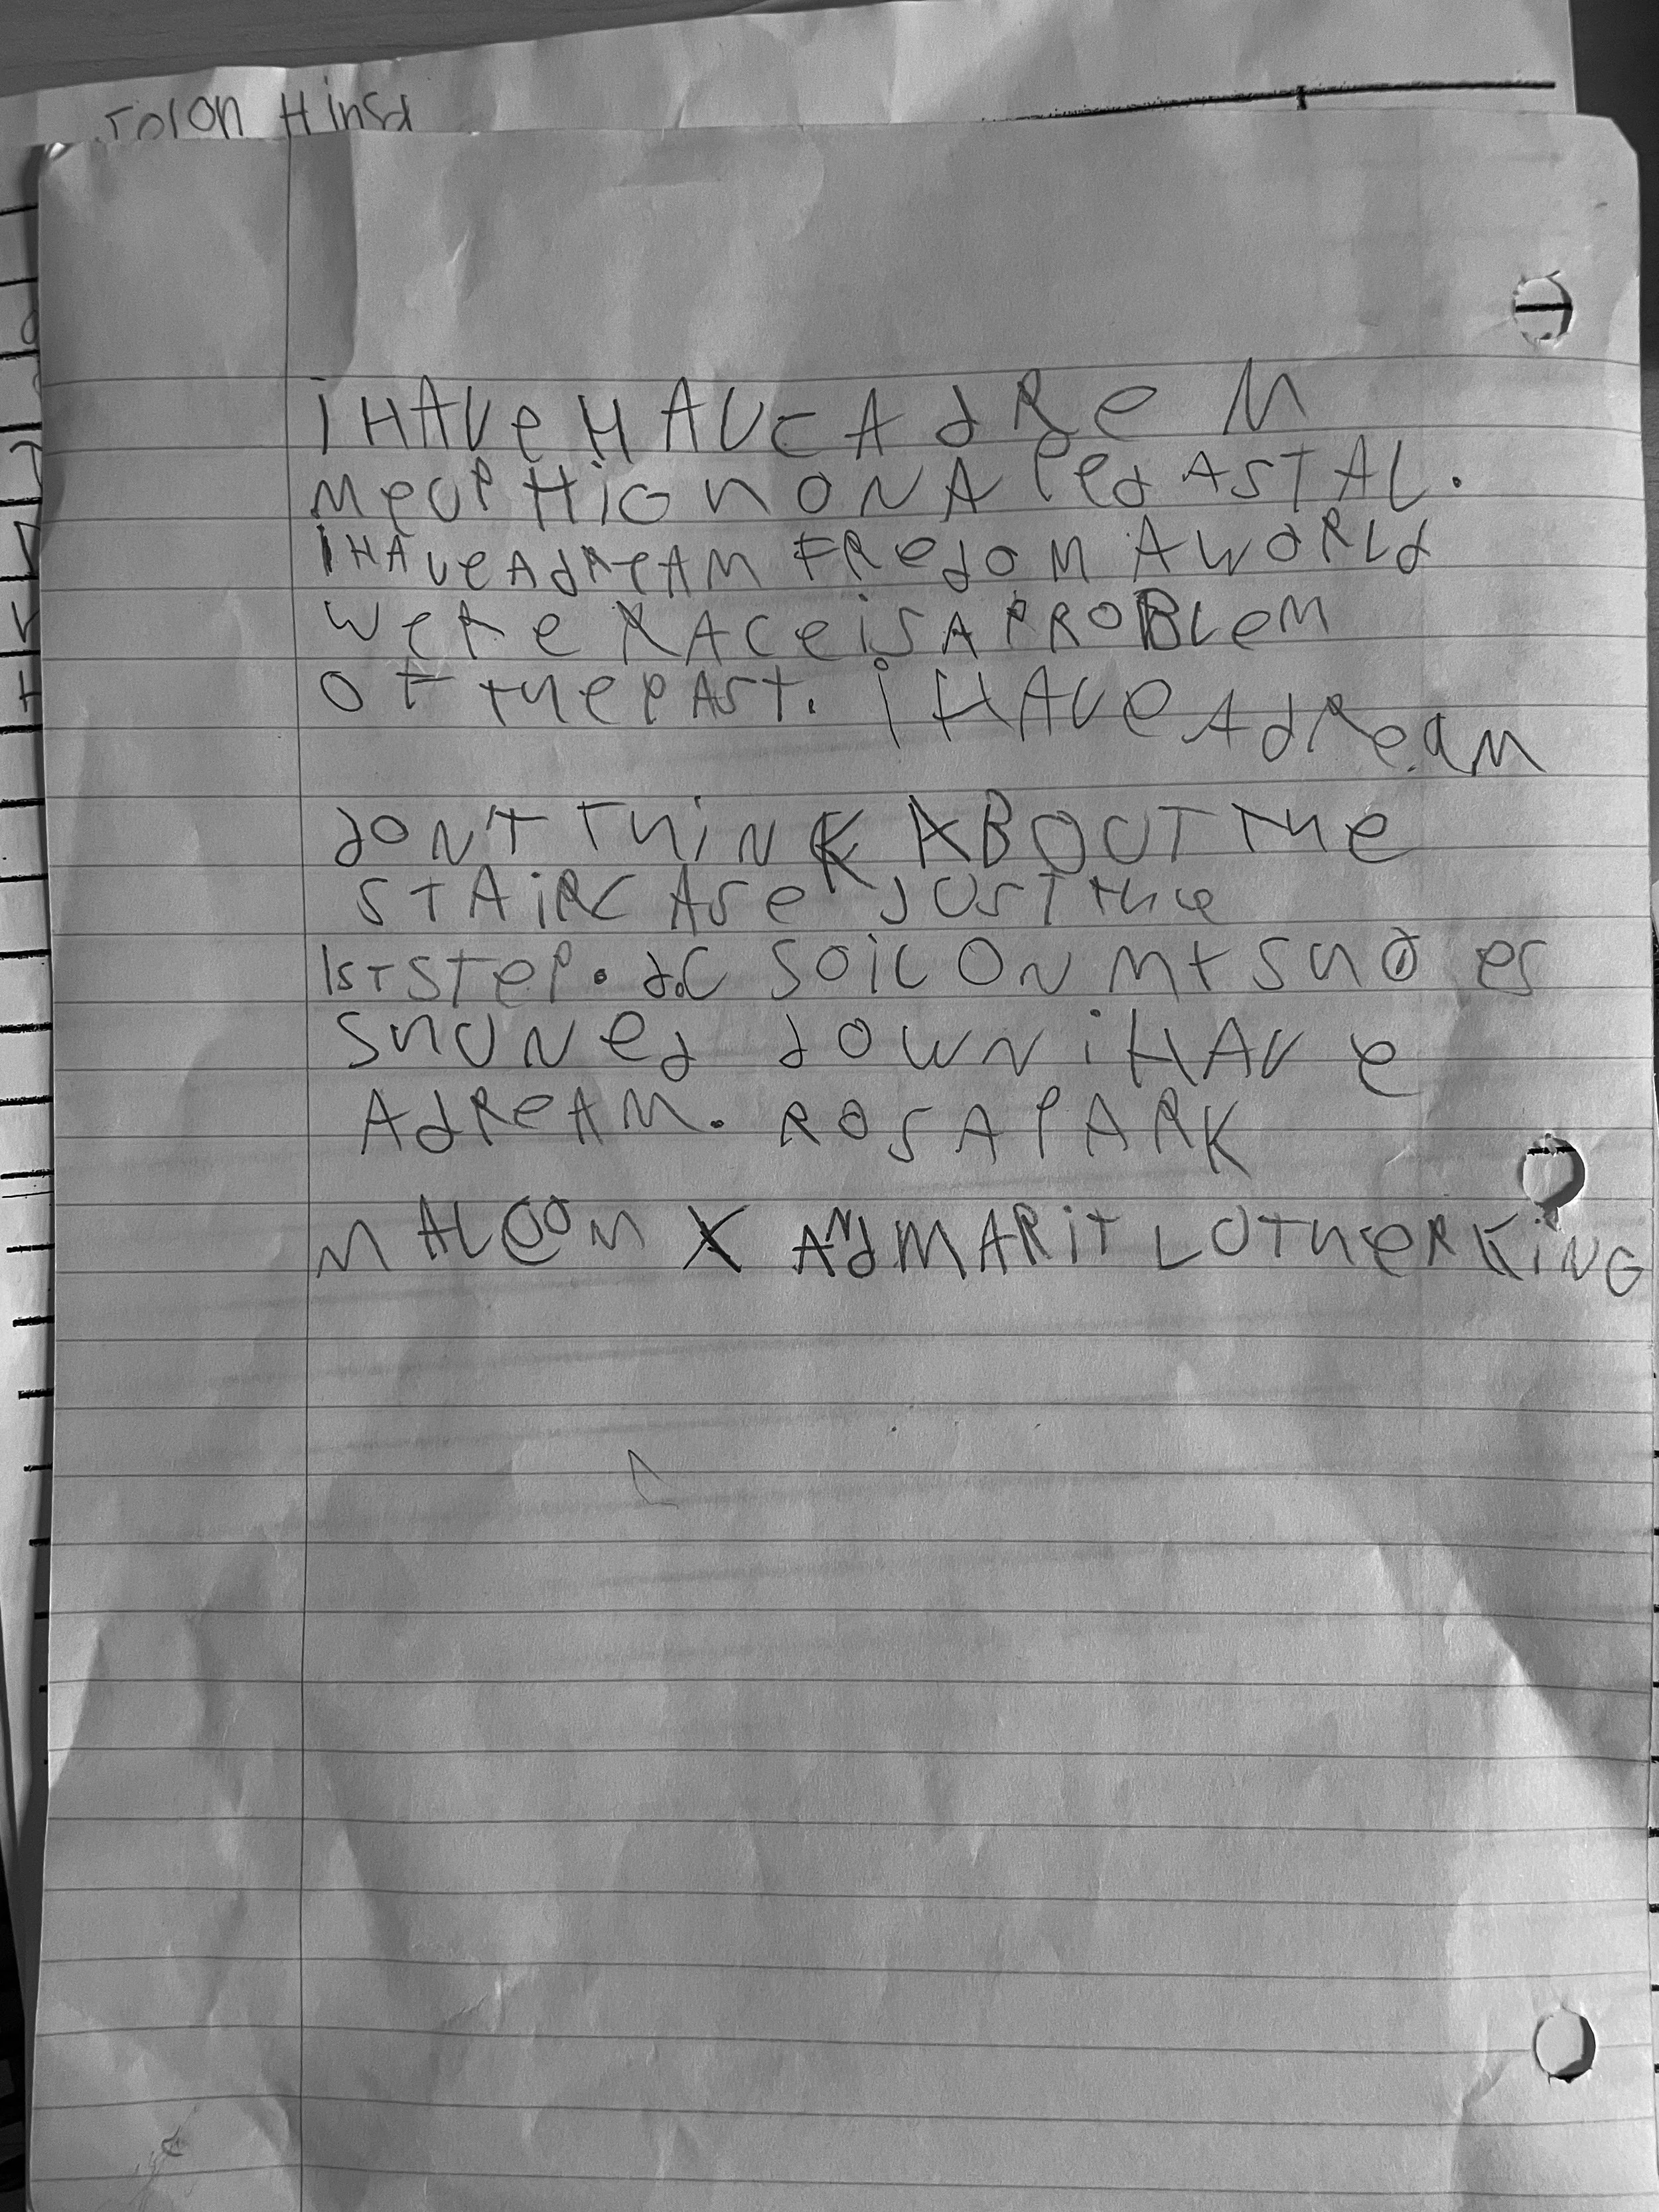 Jolon Hinsd
i HAVe HAVE A dReM
Me UP HiGh ON A PedASTAL.
I HAVe A dReAM FRedOM A WORLd
WeRe RACe iS A PROBLeM
OF The PAST. i HAVe A dReaM
dON'T ThiNK ABOUT The
STAIRCASe JUST The
1ST STeP. d.C SOiL ON MY ShOes
ShUNed dOWN i HAVe
A dReAM. ROSA PARK
MALCOM X ANd MARiT LUTHeR KiNG